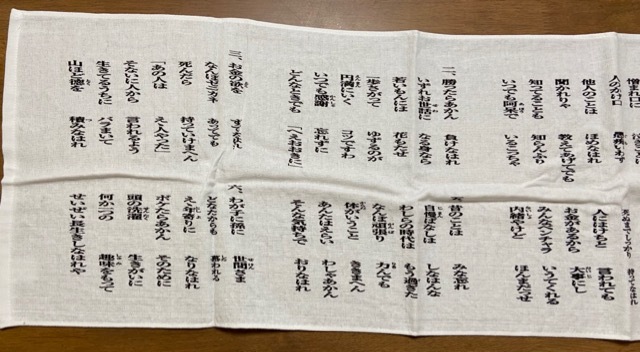 他人のことは ほめなはれ
聞かれりゃ 教えてあげてでも
知ってることも 知らんふり
いつでも阿呆で いるこっちゃ
二、勝たらあかん 負けなはれ
いずれお世話に なる身なら
若いもんには 花もたせ
一歩さがって ゆずるのが
円満にいく コツですわ
いつでも感謝 忘れずに
どんなときでも 「へえおおきに」
三、お金の欲を すてなはれ
なんぼゼニカネ あってでも
死んだら 持っていけまへん
「あの人は ええ人やった」
そないに人から 言われるよう
生きてるうちに バラまいて
山ほど徳を 積みなはれ
人にけちやと 言われても
お金があるから 大事にし
みんなベンチャラ いうてくれる
内緒やけど ほんまだっせ
五、昔のことは みな忘れ
自慢ばなしは しなはんな
わしらの時代は もう過ぎた
なんぼ頑張り 力んでも
体がいうこと ききまへん
あんたはえらい わしゃあかん
そんな気持ちで おりなはれ
六、わが子に孫に 世間さま
どなたからも 慕われる
ええ年寄りに なりなはれ
ボケたらあかん そのために
頭の洗濯 生きがいに
何か一つの 趣味をもって
せいぜい長生き しなはれや